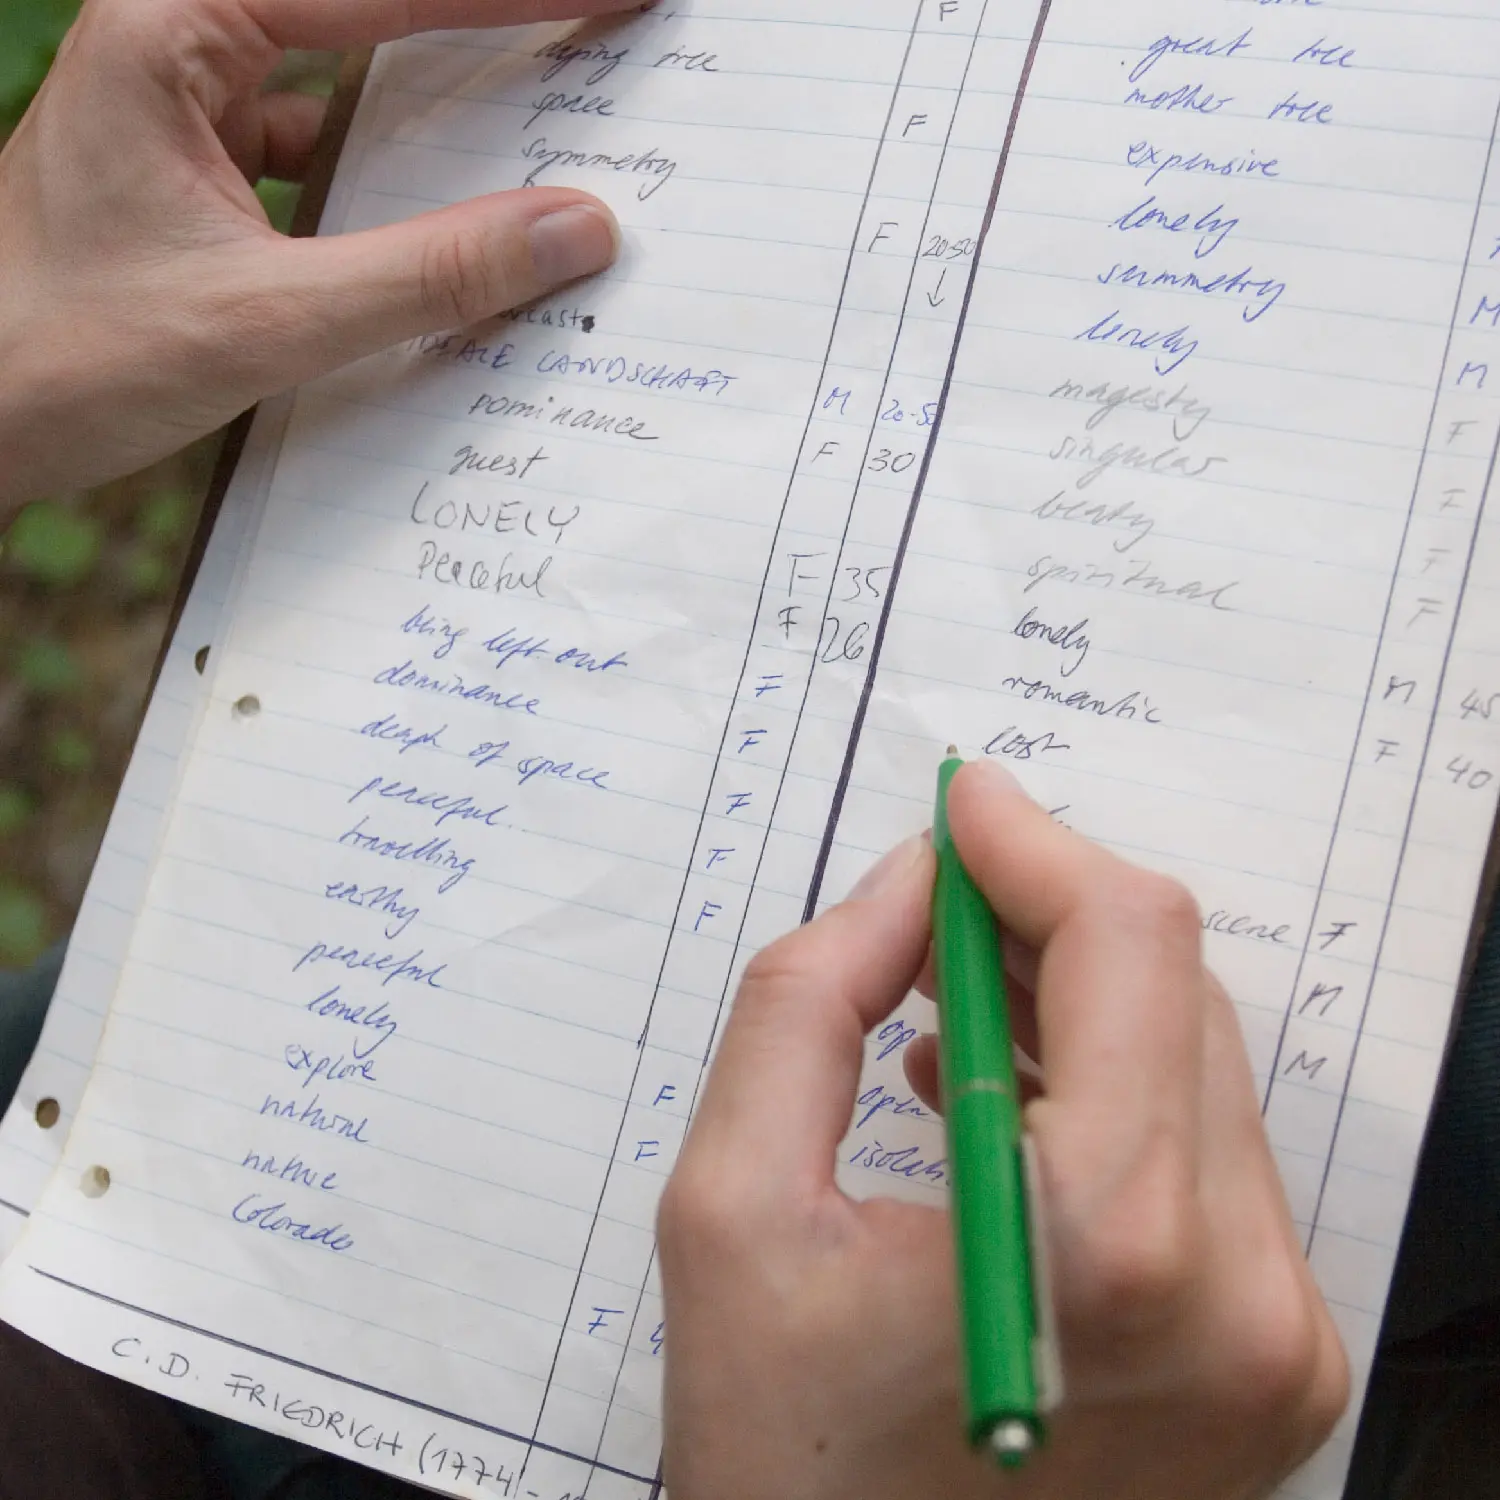 F
dying tree
space
F
symmetry
F 20-50
↓
IDEALE LANDSCHAFT
M 20-50
DOMINANCE
F 30
guest
LONELY
Peaceful
F 35
F 26
being left out
F
dominance
F
deaph of space
F
peaceful.
F
travelling
F
earthy
peaceful
lonely
explore
F
natural
F
nature
Colorado
F 4
C.D. FRIEDRICH (1774 -
great tree
mother tree
expensive
lonely
summetry
M
lonely
M
magesty
F
singular
F
beaty
F
spiritual
F
lonely
romantic
M 45
lost
F 40
scene F
M
M
op
open